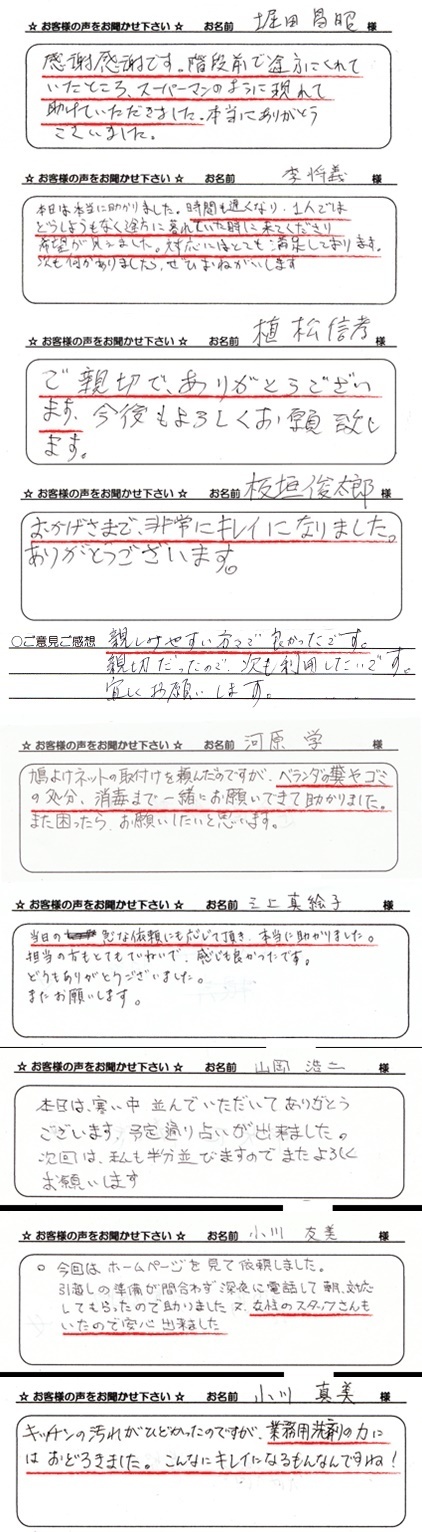 ☆ お客様の声をお聞かせ下さい ☆ お名前 堀田昌昭 様
感謝感謝です。階段前で途方にくれて
いたところ、スーパーマンのように現れて
助けていただきました。本当にありがとう
ございました。
☆ お客様の声をお聞かせ下さい ☆ お名前 李将義 様
本日は本当に助かりました。時間も遅くなり、1人では
どうしようもなく途方に暮れていた時に来てくださり
希望が見えました。対応にはとても満足しております。
次も何かありましたら、ぜひおねがいします
☆ お客様の声をお聞かせ下さい ☆ お名前 植松信孝 様
ご親切で、ありがとうござい
ます、今後もよろしくお願致し
ます。
☆ お客様の声をお聞かせ下さい ☆ お名前 板垣俊太郎 様
おかげさまで、非常にキレイになりました。
ありがとうございます。
○ご意見ご感想 親しみやすい方々で良かったです。
親切だったので、次も利用したいです。
宜しくお願いします。
☆ お客様の声をお聞かせ下さい ☆ お名前 河原 学 様
鳩よけネットの取付けを頼んだのですが、ベランダの糞やゴミ
の処分、消毒まで一緒にお願いできて助かりました。
また困ったら、お願いしたいと思います。
☆ お客様の声をお聞かせ下さい ☆ お名前 三上真絵子 様
当日の 急な依頼にも応じて頂き、本当に助かりました。
担当の方もとてもていねいで、感じも良かったです。
どうもありがとうございました。
またお願いします。
☆ お客様の声をお聞かせ下さい ☆ お名前 山岡 浩二 様
本日は、寒い中 並んでいただいて ありがとう
ございます、予定通り占いが出来ました。
次回は、私も半分並びますので またよろしく
お願いします
☆ お客様の声をお聞かせ下さい ☆ お名前 小川 友美 様
○ 今回は ホームページを見て依頼しました。
引越しの準備が間合わず 深夜に電話して 朝、対応
してもらったので助りました 又、女性のスタッフさんも
いたので安心 出来ました
☆ お客様の声をお聞かせ下さい ☆ お名前 小川 真美 様
キッチンの汚れがひどかったのですが、業務用洗剤の力に
は おどろきました。 こんなにキレイになるもんなんですね！